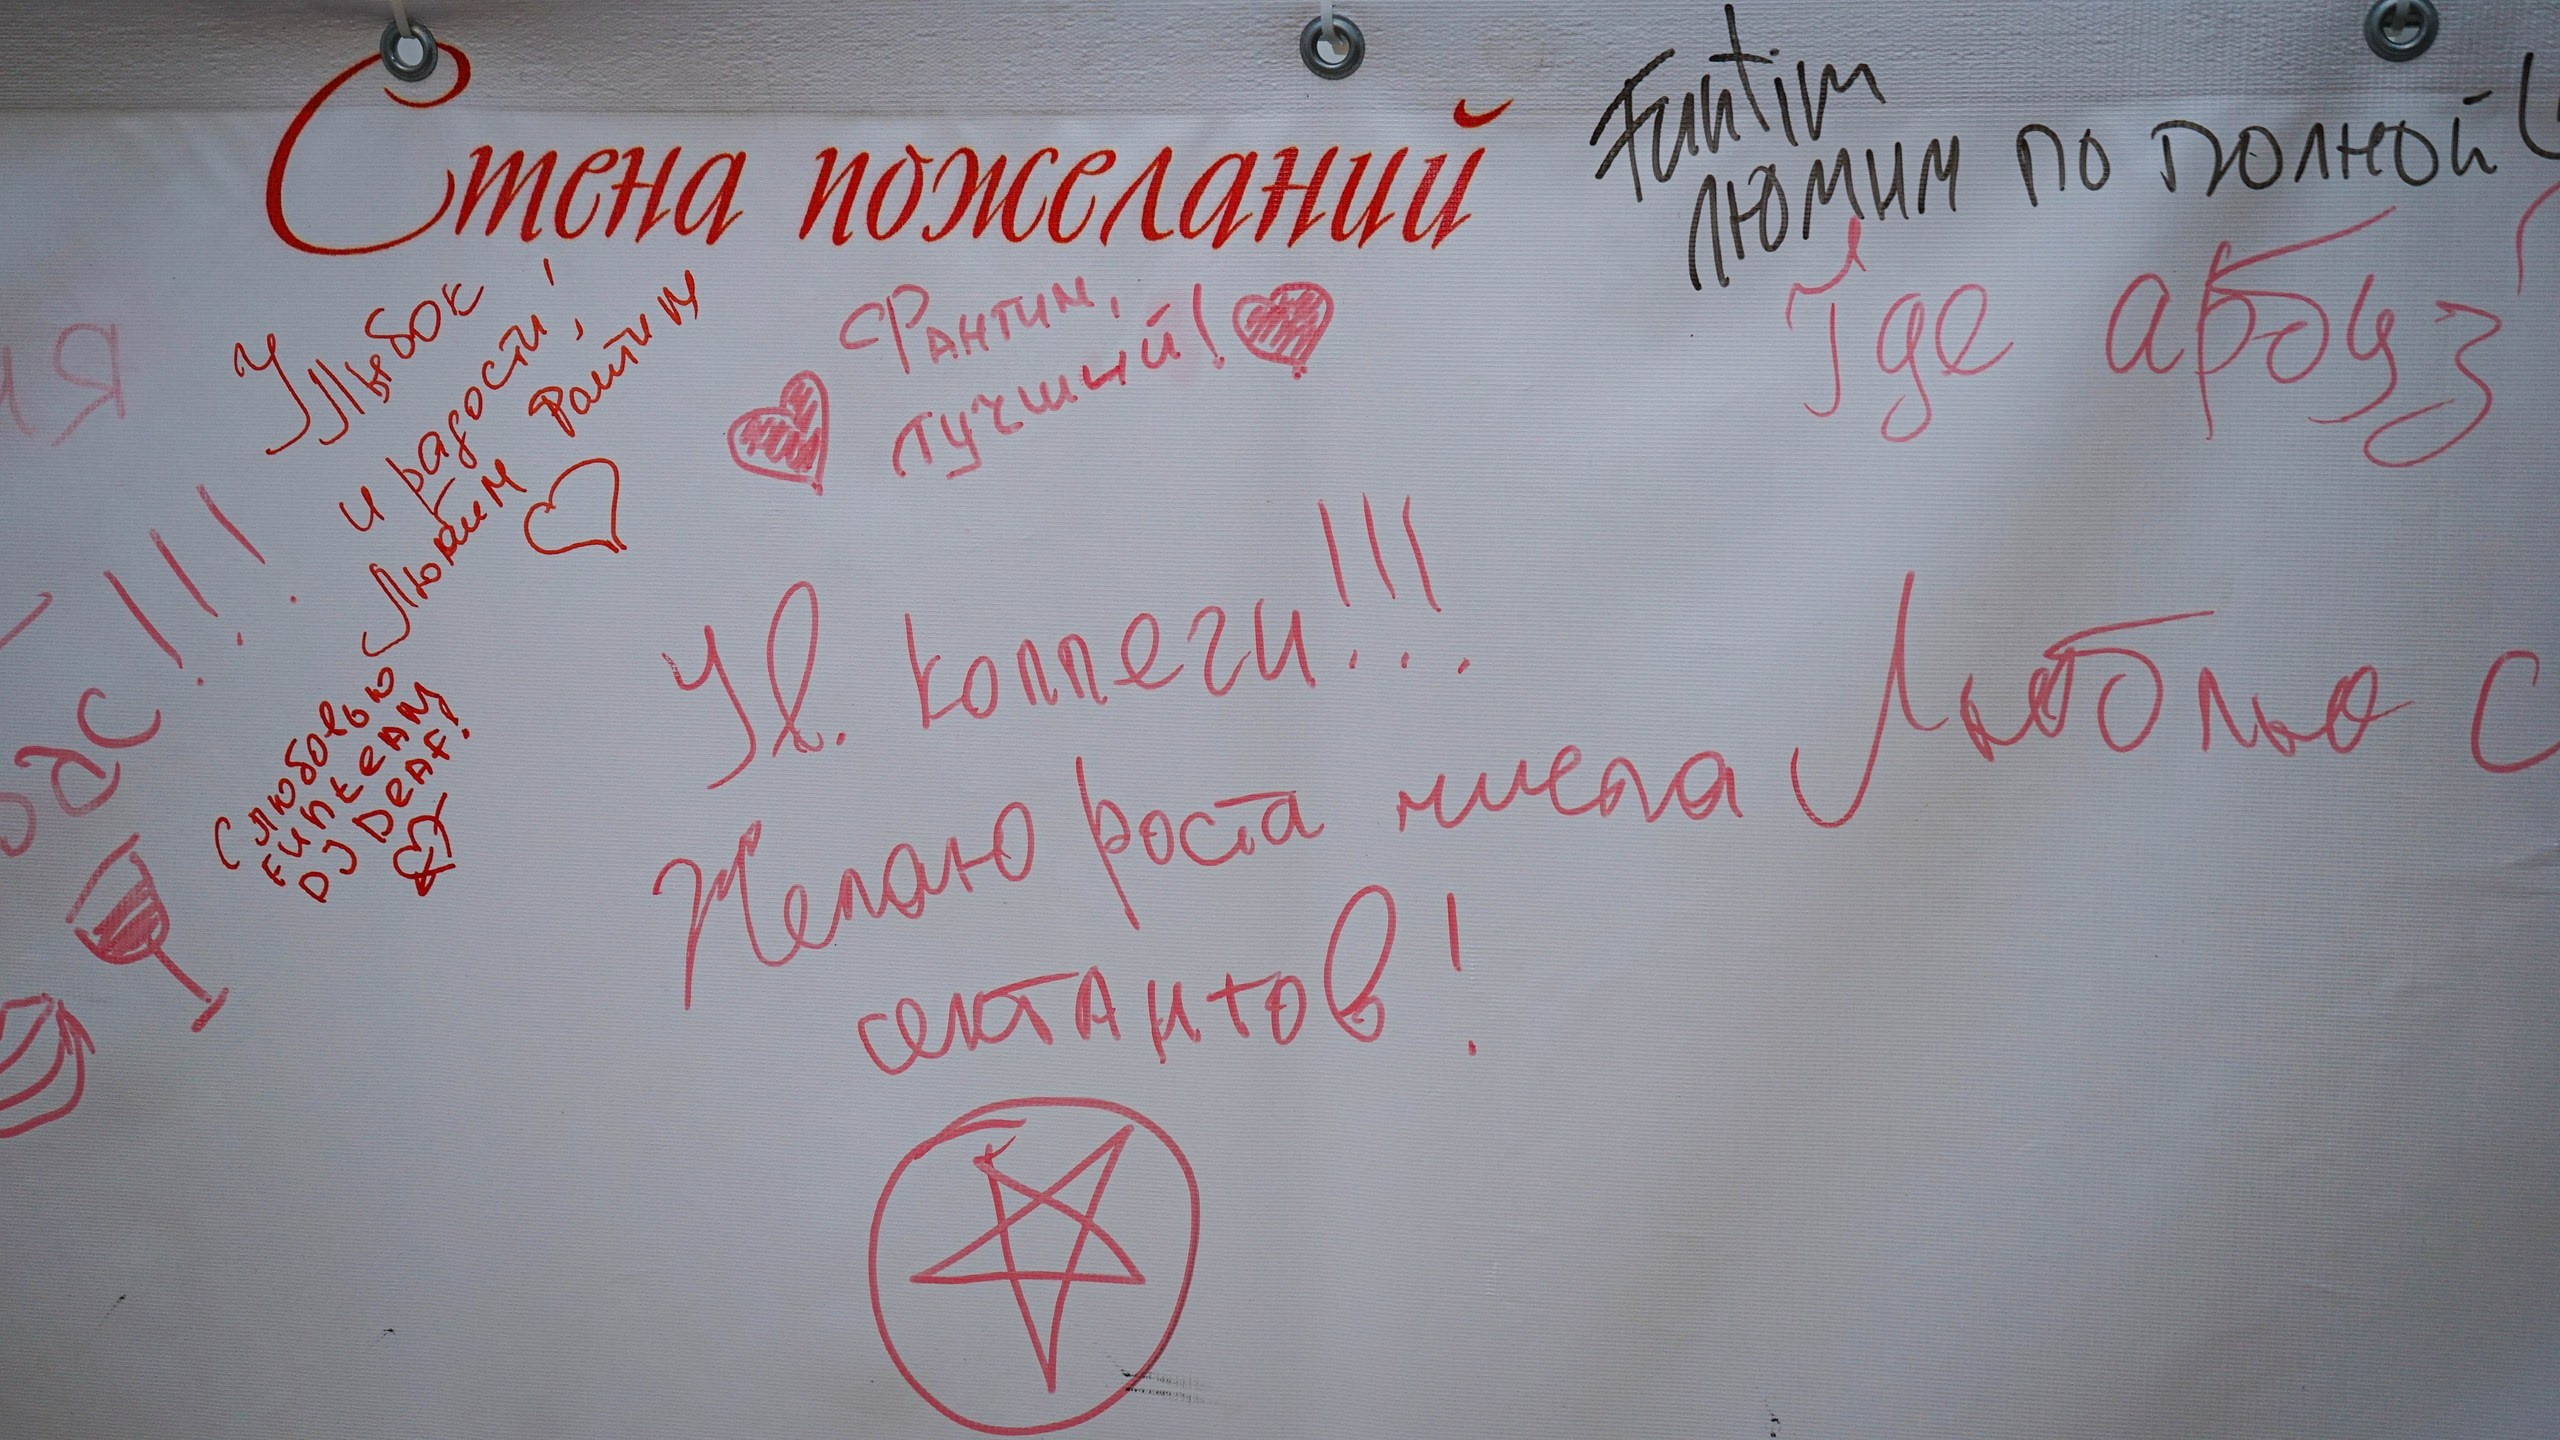 Стена пожеланий
Funtim
люмим по полной
Улыбок!
и радости!
Любим Фантим
С любовью
DJ DEAF!
Фантим,
лучший!
Где арбуз
Ув. коллеги!!!
Желаю роста числа
сектантов!
Люблю С
вас!!!